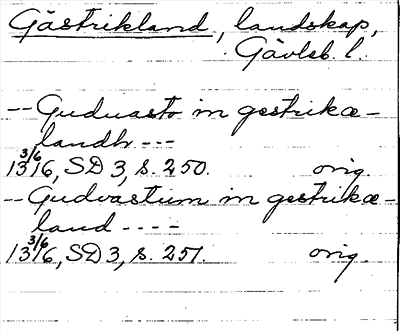 Gästrikland, landskap,
Gävleb. l.
-- Guduasto in gestrikæ-
landh ---
13 3/6 16, SD 3, s. 250. orig.
-- Gudvastum in gestrikæ-
land ----
13 3/6 16, SD 3, s. 251. orig.